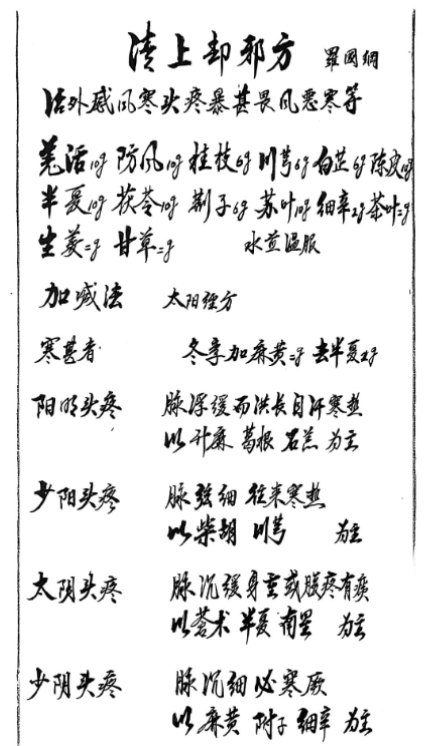 清上却邪方 羅國綱
治外感风寒头疼暴甚畏风恶寒等
羌活10g 防风10g 桂枝6g 川芎6g 白芷6g 陈皮10g
半夏10g 茯苓10g 荆子6g 苏叶10g 细辛2g 茶叶=g
生姜=g 甘草=g 水煎温服
加减法 太阳经方
寒甚者 冬季加麻黄=g 去半夏
阳明头疼 脉浮缓而洪长自汗寒热
以升麻 葛根 石羔 为主
少阳头疼 脉弦细 往来寒热
以柴胡 川芎 为主
太阴头疼 脉沉缓身重或腹疼有痰
以苍术 半夏 南星 为主
少阴头疼 脉沉细必寒厥
以麻黄 附子 细辛 为主